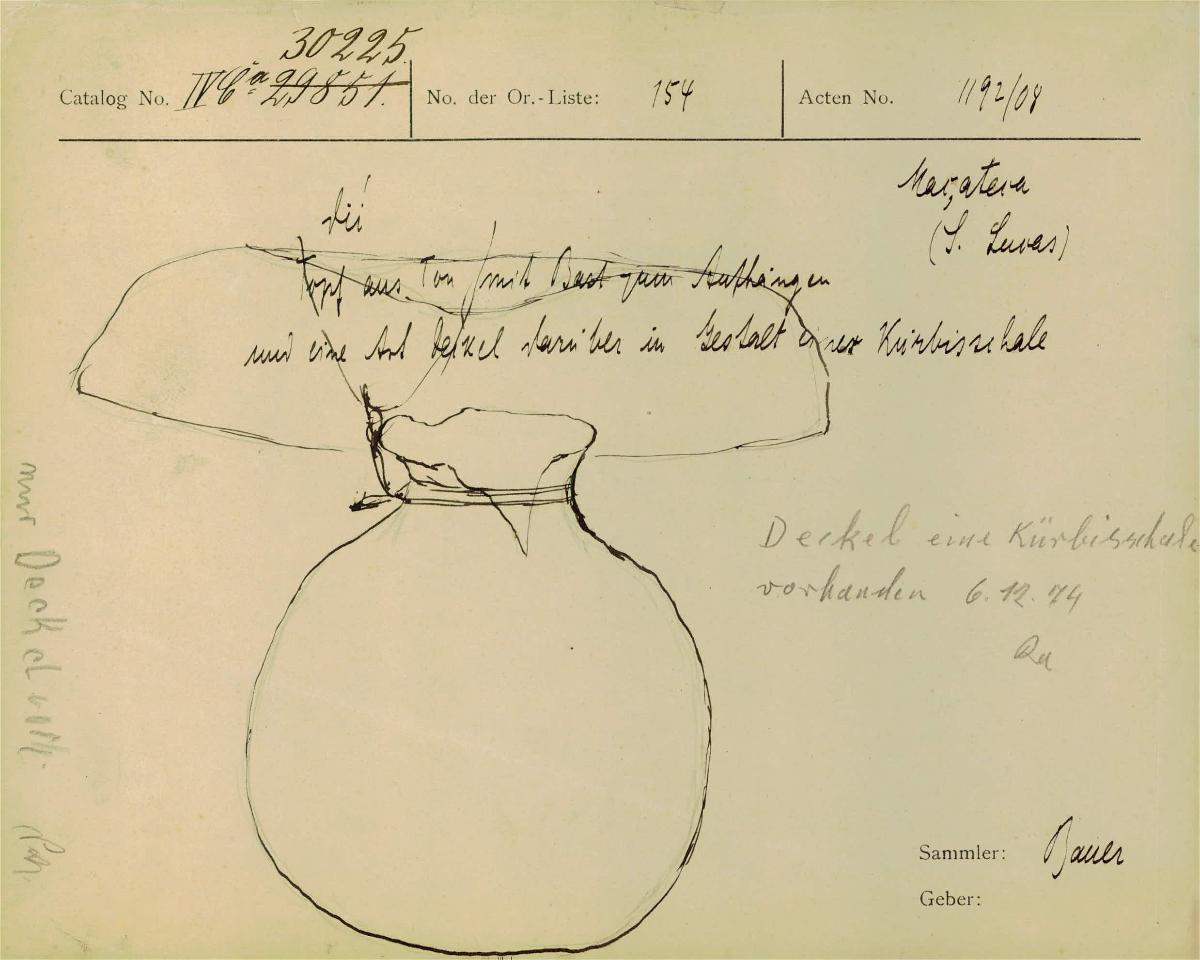 30225.
Catalog No. IV Ca 29851. No. der Or.-Liste: 154 Acten No. 1192/08
Maz̧atewa
(S. Lucas)
dií
Topf aus Ton (mit Bast zum Aufhängen
und eine Art Deckel darüber in Gestalt einer Kürbisschale
Deckel eine Kürbisschale
vorhanden 6.12.74
nur Deckel vorh.
Sammler: Bauer
Geber: